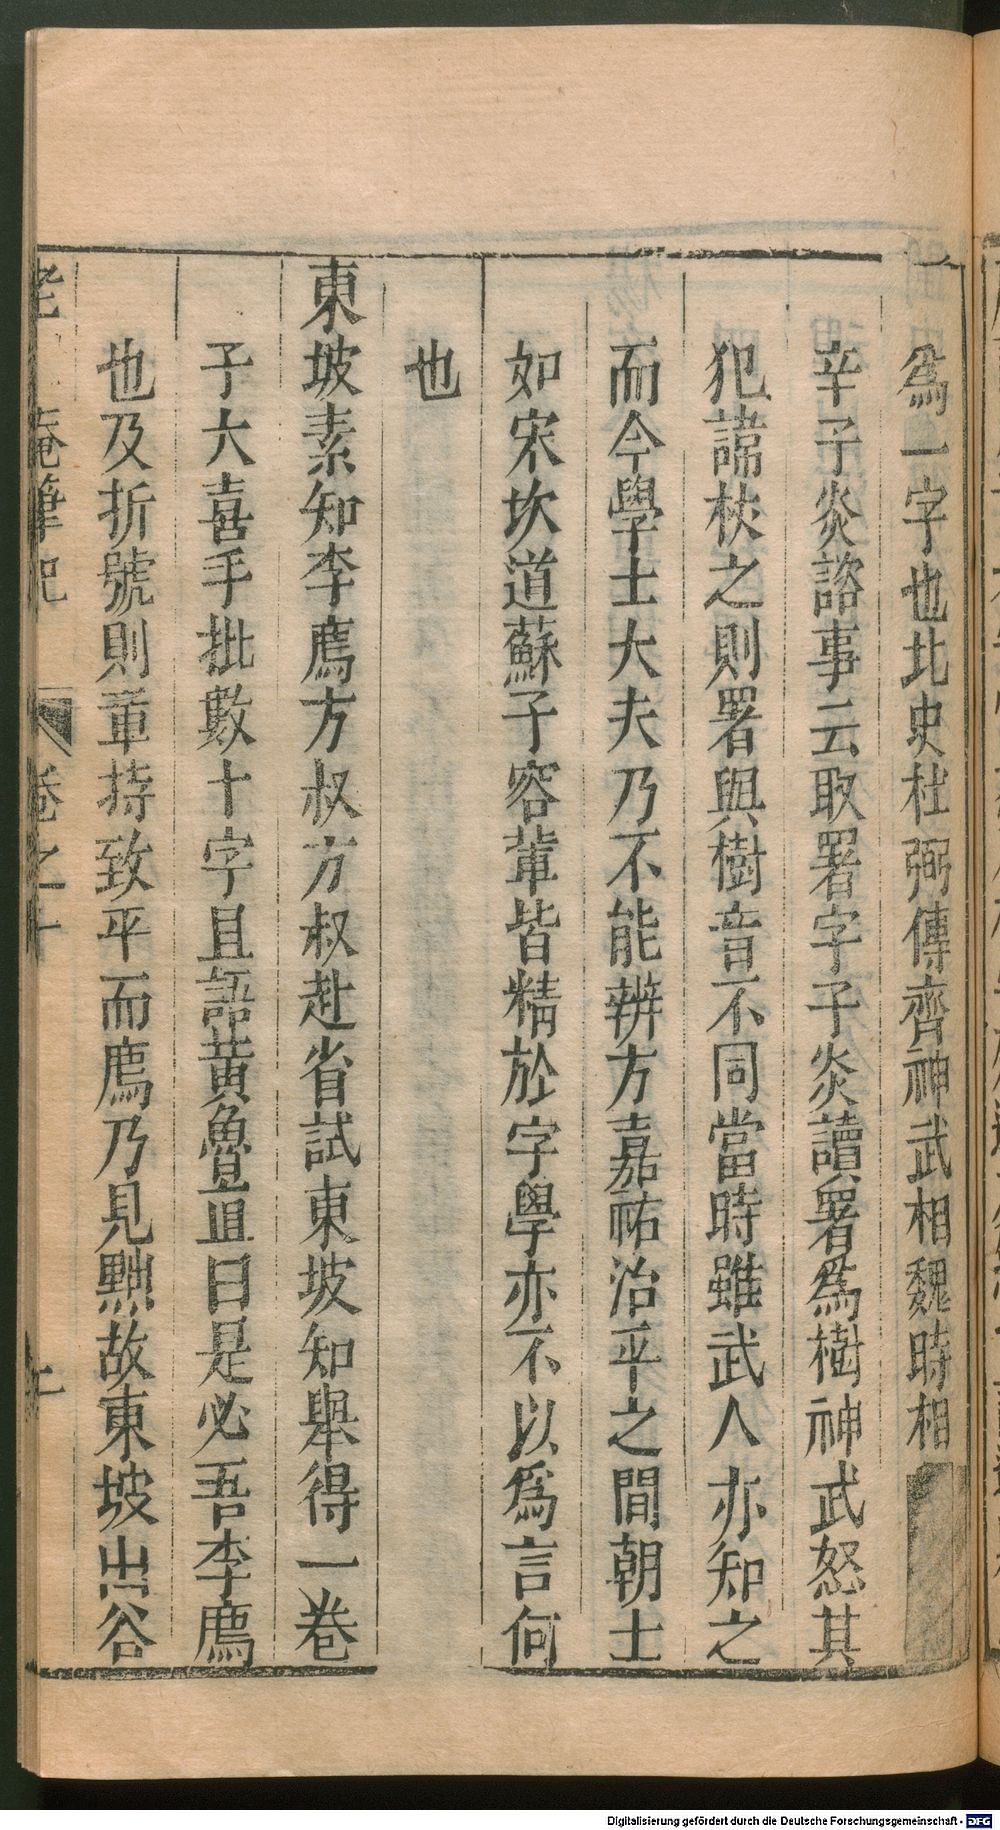 爲一字也北史杜弼傳齊神武相魏時相
辛子炎諮事云取署字子炎讀署爲樹神武怒其
犯諱杖之則署與樹音不同當時雖武人亦知之
而今學士大夫乃不能辨方嘉祐治平之間朝士
如宋次道蘇子容輩皆精於字學亦不以爲言何
也
東坡素知李廌方叔方叔赴省試東坡知舉得一卷
子大喜手批數十字且語黃魯直曰是必吾李廌
也及折號則章持致平而廌乃見黜故東坡出谷
老 庵筆記 卷之十
Digitalisierung gefördert durch die Deutsche Forschungsgemeinschaft - DFG